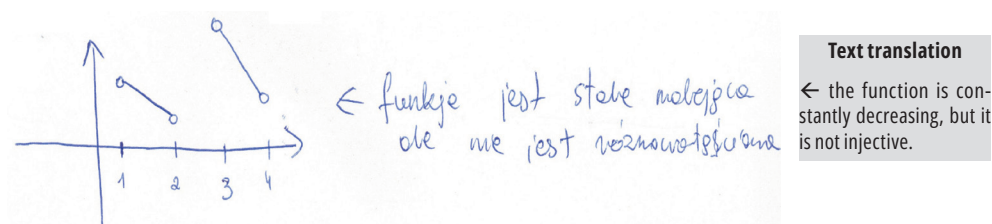 ← funkcja jest stale malejąca
ale nie jest różnowartościowa
1 2 3 4
Text translation
← the function is con-
stantly decreasing, but it
is not injective.